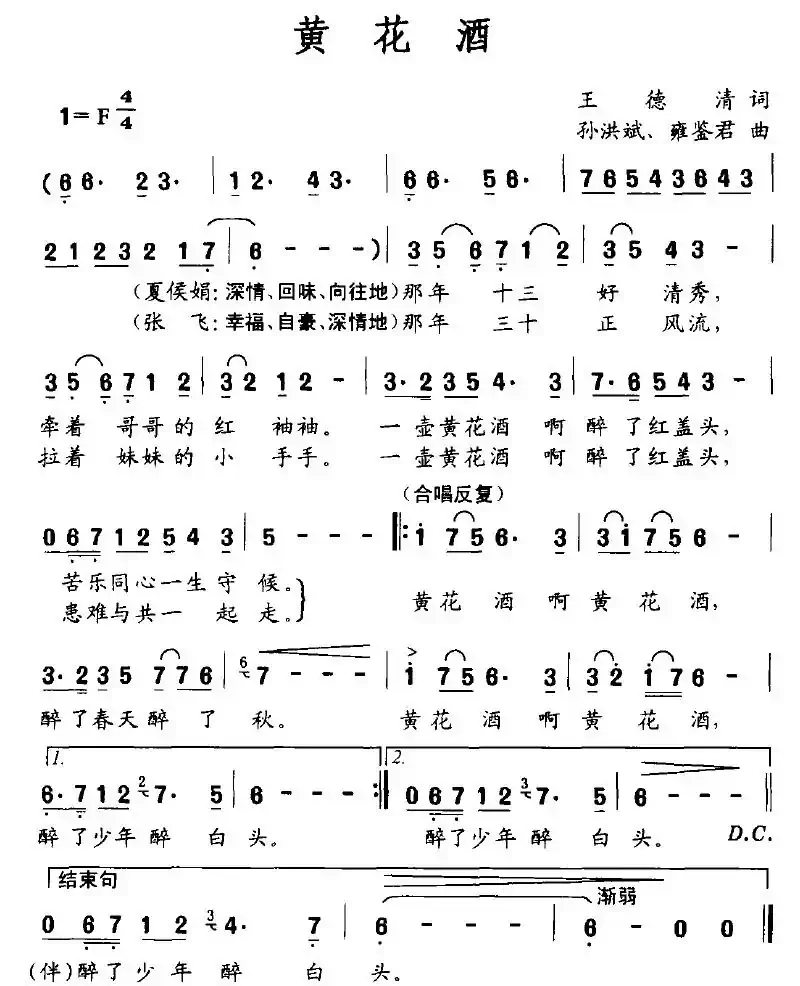 黄花酒
王德清词
1=F 4/4
孙洪斌、雍鉴君 曲
(6 6· 2 3· | 1 2· 4 3· | 6 6· 5 6· | 7 6 5 4 3 6 4 3 |
2 1 2 3 2 1 7 | 6 - - - ) | 3 5 6 7 1 2 | 3 5 4 3 - |
(夏侯娟:深情、回味、向往地)那年 十三 好 清秀,
(张 飞:幸福、自豪、深情地)那年 三十 正 风流,
3 5 6 7 1 2 | 3 2 1 2 - | 3· 2 3 5 4· 3 | 7· 6 5 4 3 - |
牵着 哥哥的红 袖袖。 一壶黄花酒 啊 醉了红盖头,
拉着 妹妹的小 手手。 一壶黄花酒 啊 醉了红盖头,
(合唱反复)
0 6 7 1 2 5 4 3 | 5 - - - |: 1 7 5 6· 3 | 3 1 7 5 6 - |
苦乐同心一生守候。
患难与共一 起走。
黄花 酒 啊 黄 花 酒,
3· 2 3 5 7 7 6 | 6 7 - - - | > 1 7 5 6· 3 | 3 2 1 7 6 - |
醉了春天醉 了 秋。 黄花 酒 啊 黄 花 酒,
1. 2.
6· 7 1 2 2 7· 5 | 6 - - - :| 0 6 7 1 2 3 7· 5 | 6 - - - ||
醉了少年醉 白头。 醉了少年醉 白头。 D.C.
结束句 渐弱
0 6 7 1 2 3 4· 7 | 6 - - - | 6 - 0 0 ||
(伴)醉了少年醉 白 头。